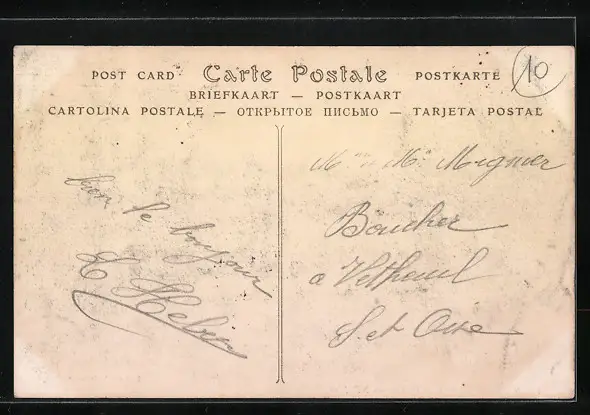 POST CARD Carte Postale POSTKARTE
10
BRIEFKAART — POSTKAART
CARTOLINA POSTALE — ОТКРЫТОЕ ПИСЬМО — TARJETA POSTAL
bien le bonjour
Mr et Me
Boucher
a Vetheuil
S. et Oise